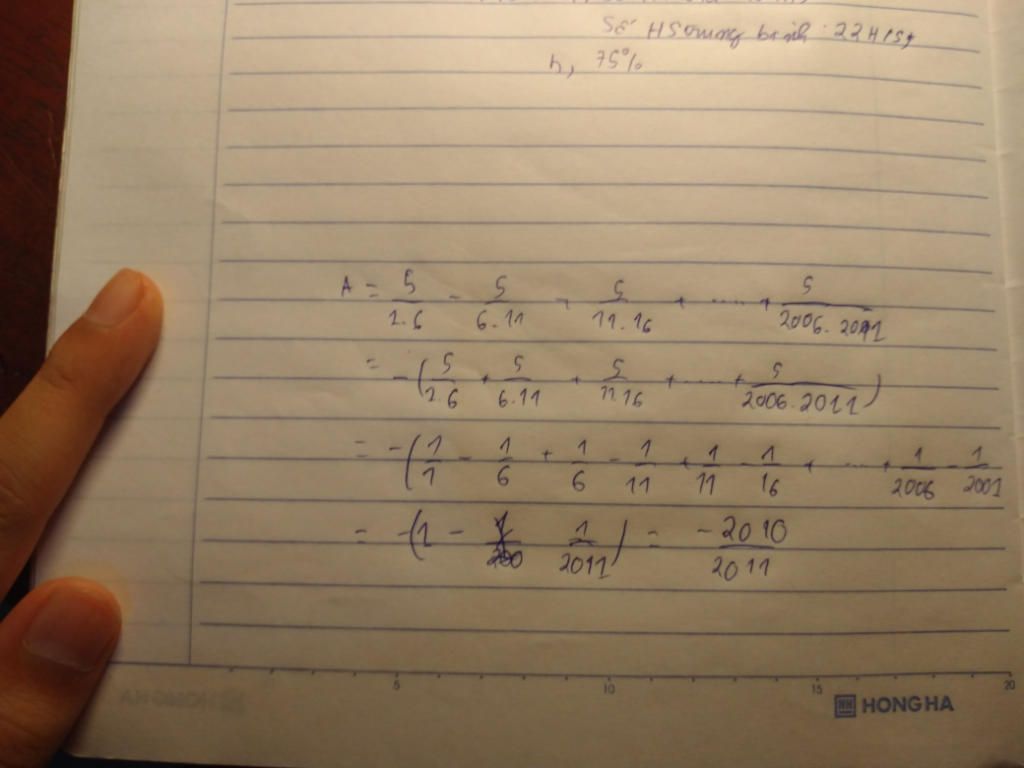 Số HS trung bình : 22 HS
b, 75%
A = 5/1.6 - 5/6.11 - 5/11.16 + ..... + 5/2006.2011
= -(5/1.6 + 5/6.11 + 5/11.16 + ..... + 5/2006.2011)
= -(1/1 - 1/6 + 1/6 - 1/11 + 1/11 - 1/16 + ..... + 1/2006 - 1/2001
= -(1 - 1/2011) = -2010/2011
5 10 15 20
HONG HA